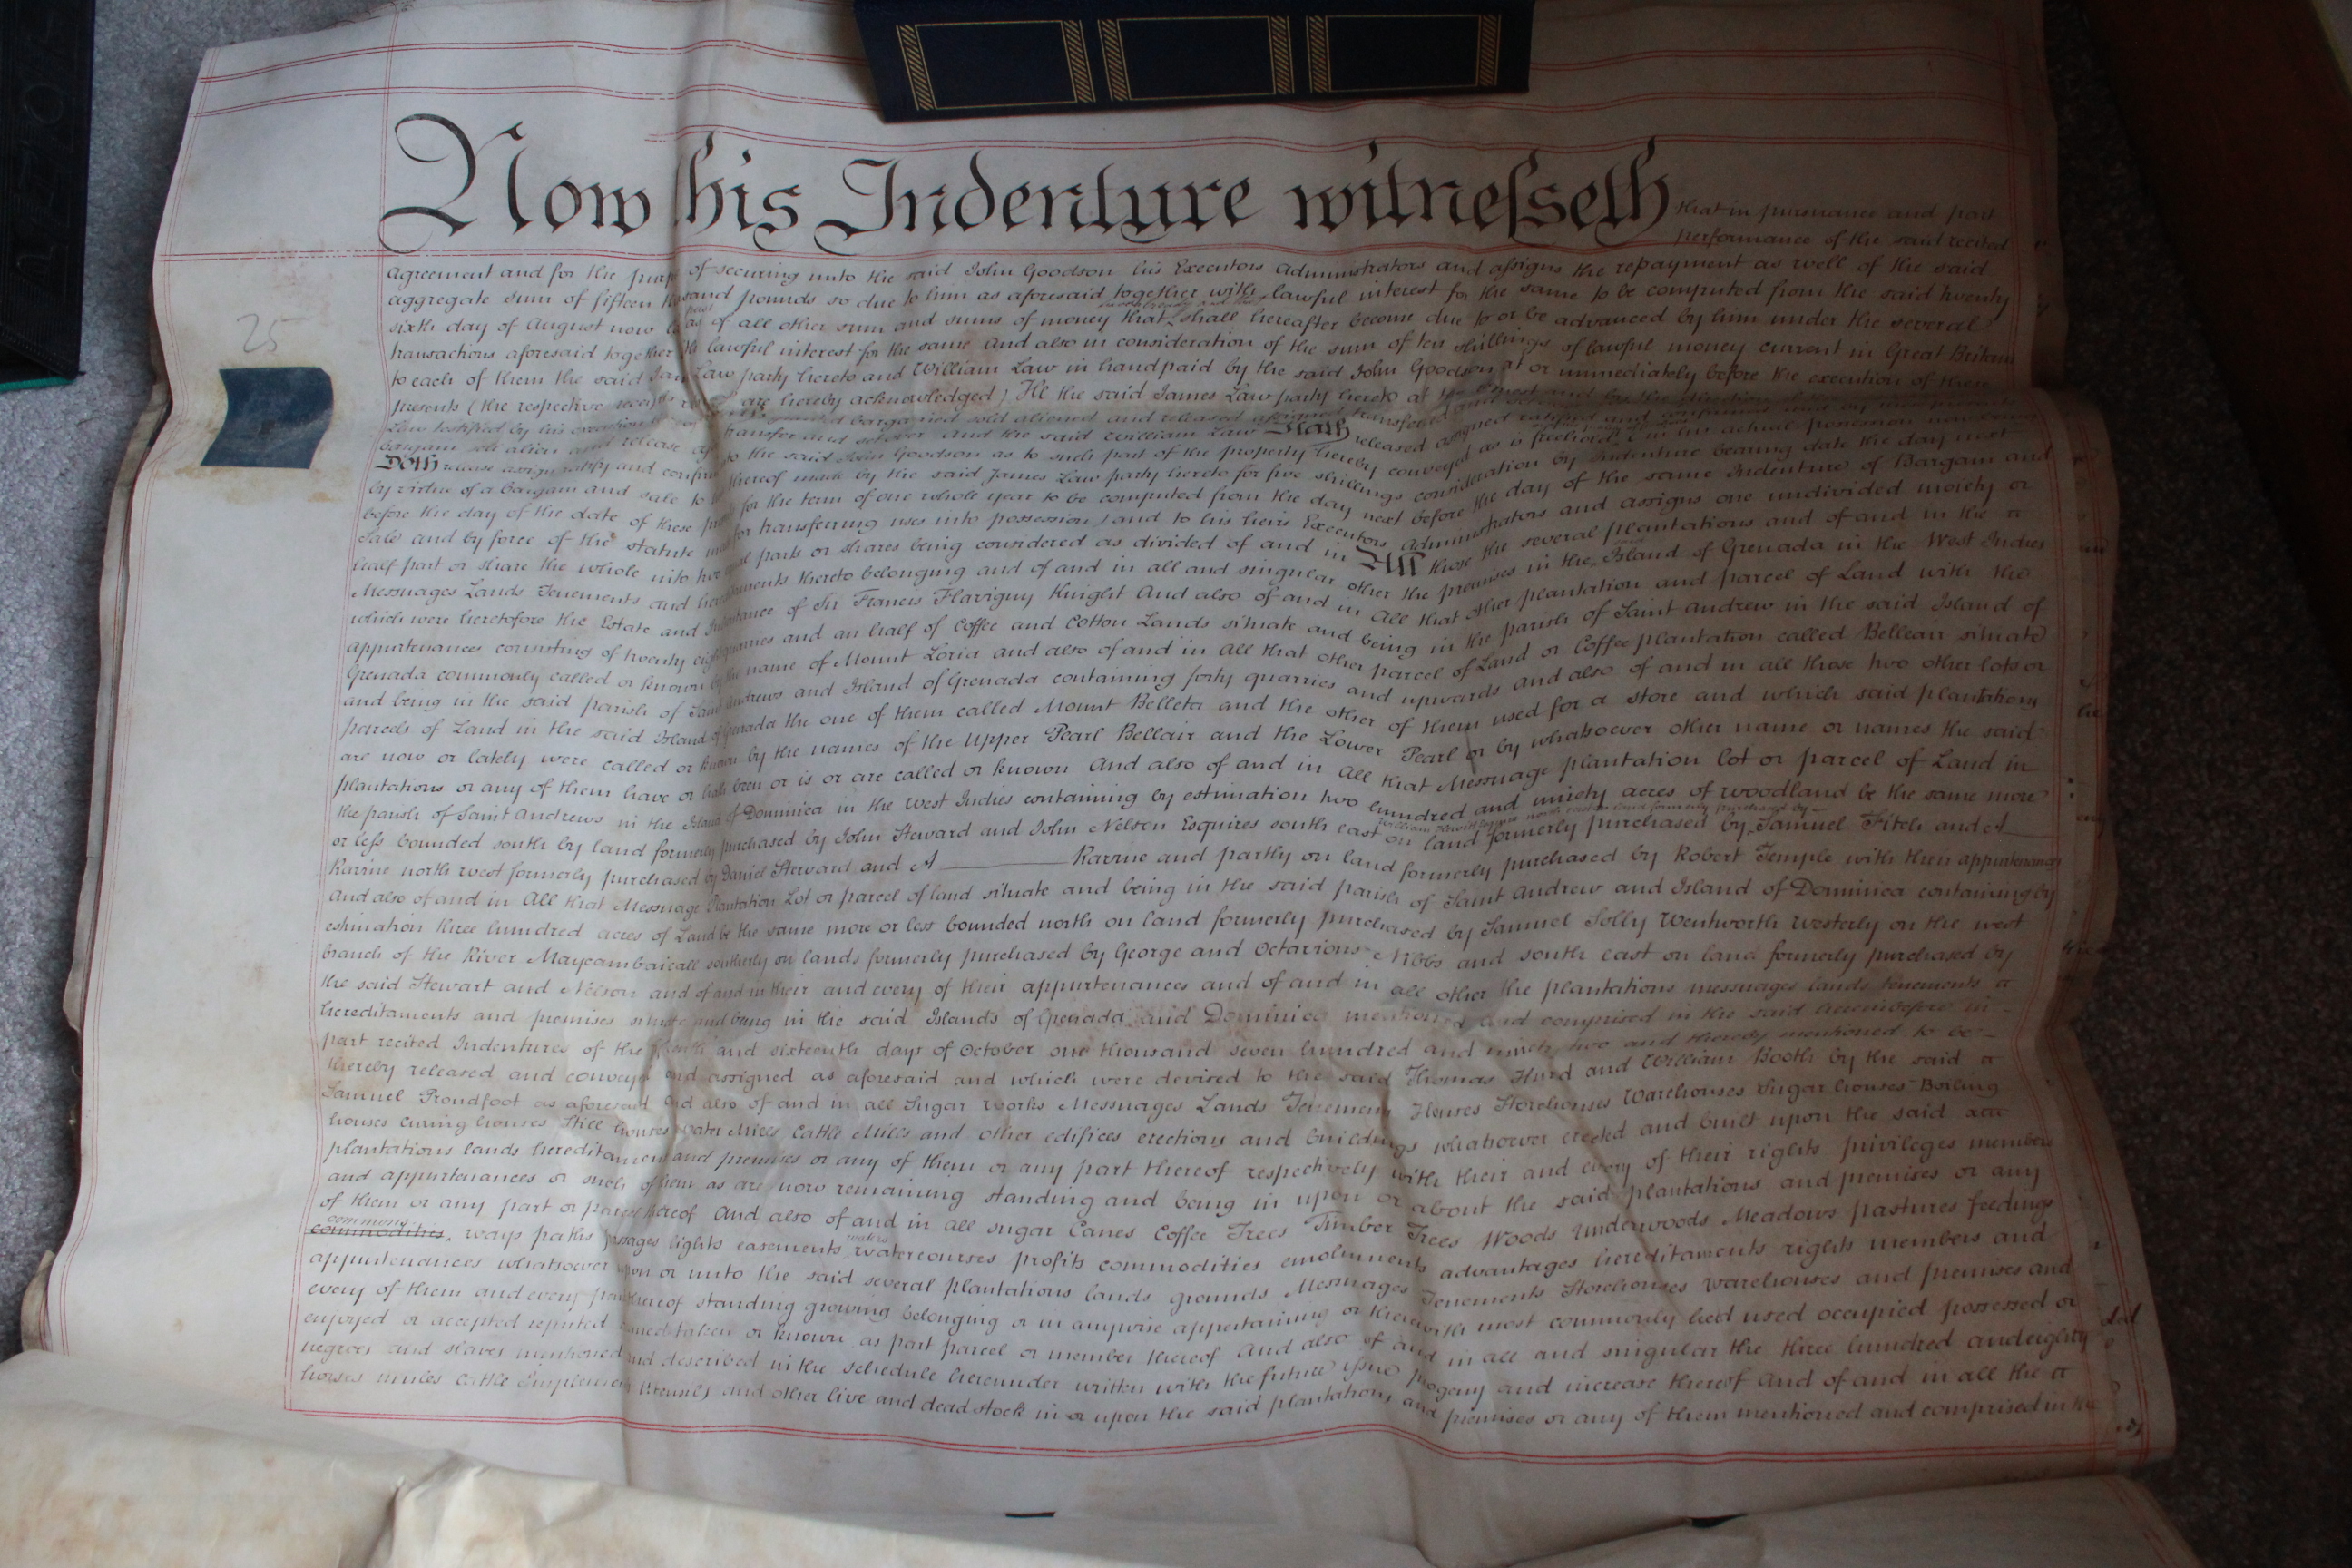 Now this Indenture witnesseth that in pursuance and part
performance of the said recited
agreement and for the purpose of securing unto the said John Goodson his Executors Administrators and assigns the repayment as well of the said
aggregate sum of fifteen thousand pounds so due to him as aforesaid together with lawful interest for the same to be computed from the said twenty
sixth day of August now last past as of all other sum and sums of money that shall hereafter become due to or be advanced by him under the several
transactions aforesaid together with lawful interest for the same And also in consideration of the sum of ten shillings of lawful money current in Great Britain
to each of them the said James Law party hereto and William Law in hand paid by the said John Goodson at or immediately before the execution of these
presents (the respective receipts are hereby acknowledged) He the said James Law party hereto at the
Law testified by his execution bargained sold aliened and released assigned transferred
bargain sell alien and release transfer and set over And the said William Law Hath released assigned ratified and confirmed and by these presents
Doth release assign ratify and confirm to the said John Goodson as to such part of the property hereby conveyed as is freehold in his actual possession now being
by virtue of a bargain and sale to thereof made by the said James Law party hereto for five shillings consideration by Indenture bearing date the day next
before the day of the date of these presents for the term of one whole year to be computed from the day next before the day of the same Indenture of Bargain and
Sale and by force of the statute made for transferring uses into possession) and to his heirs Executors Administrators and assigns one undivided moiety or
half part or share the whole into two equal parts or shares being considered as divided of and in All those the several plantations and of and in the
Messuages Lands Tenements and hereditaments thereto belonging and of and in all and singular other the premises in the Island of Grenada in the West Indies
which were heretofore the Estate and Inheritance of Sir Francis Flavigny Knight And also of and in All that other plantation and parcel of Land with the
appurtenances consisting of twenty eight quarries and an half of Coffee and Cotton Lands situate and being in the parish of Saint Andrew in the said Island of
Grenada commonly called or known by the name of Mount Loria and also of and in All that other parcel of Land or Coffee plantation called Belleair situate
and being in the said parish of Saint Andrews and Island of Grenada containing forty quarries and upwards and also of and in all those two other lots or
parcels of Land in the said Island of Grenada the one of them called Mount Belleta and the other of them used for a store and which said plantations
are now or lately were called or known by the names of the Upper Pearl Bellair and the Lower Pearl or by whatsoever other name or names the said
plantations or any of them have or hath been or is or are called or known And also of and in All that Messuage plantation lot or parcel of Land in
the parish of Saint Andrews in the Island of Dominica in the West Indies containing by estimation two hundred and ninety acres of woodland be the same more
or less bounded south by land formerly purchased by John Steward and John Nelson Esquires south east on land formerly purchased by Samuel Fitch and A
Ravine north west formerly purchased by Daniel Steward and A Ravine and partly on land formerly purchased by Robert Temple with their appurtenances
And also of and in All that Messuage Plantation Lot or parcel of land situate and being in the said parish of Saint Andrew and Island of Dominica containing by
estimation three hundred acres of Land be the same more or less bounded north on land formerly purchased by Samuel Solly Wentworth westerly on the west
branch of the River Maycambaicall southerly on lands formerly purchased by George and Octavious Nibbs and south east on land formerly purchased by
the said Stewart and Nelson and of and in their and every of their appurtenances and of and in all other the plantations messuages lands tenements
hereditaments and premises situate and being in the said Islands of Grenada and Dominica mentioned and comprised in the said hereinbefore in
part recited Indentures of the and sixteenth days of October one thousand seven hundred and ninety two and thereby mentioned to be
thereby released and conveyed and assigned as aforesaid and which were devised to the said Thomas Hurd and William Booth by the said
Samuel Proudfoot as aforesaid And also of and in all Sugar works Messuages Lands Tenements Houses Storehouses Warehouses Sugar houses Boiling
houses Curing houses Still houses Water Mills Cattle Mills and other edifices erections and buildings whatsoever erected and built upon the said
plantations lands hereditaments and premises or any of them or any part thereof respectively with their and every of their rights privileges members
and appurtenances or such of them as are now remaining standing and being in upon or about the said plantations and premises or any
of them or any part or parcel thereof And also of and in all sugar Canes Coffee Trees Timber Trees Woods Underwoods Meadows pastures feedings
commons
commodities, ways paths passages lights easements waters watercourses profits commodities emoluments advantages hereditaments rights members and
appurtenances whatsoever upon or unto the said several plantations lands grounds Messuages Tenements Storehouses warehouses and premises and
every of them and every part thereof standing growing belonging or in anywise appertaining or therewith most commonly held used occupied possessed or
enjoyed or accepted reputed deemed taken or known as part parcel or member thereof And also of and in all and singular the three hundred and eighty
negroes and slaves mentioned and described in the schedule hereunder written with the future issue progeny and increase thereof And of and in all the
horses mules cattle Implements Utensils and other live and dead stock in or upon the said plantations and premises or any of them mentioned and comprised in the
25